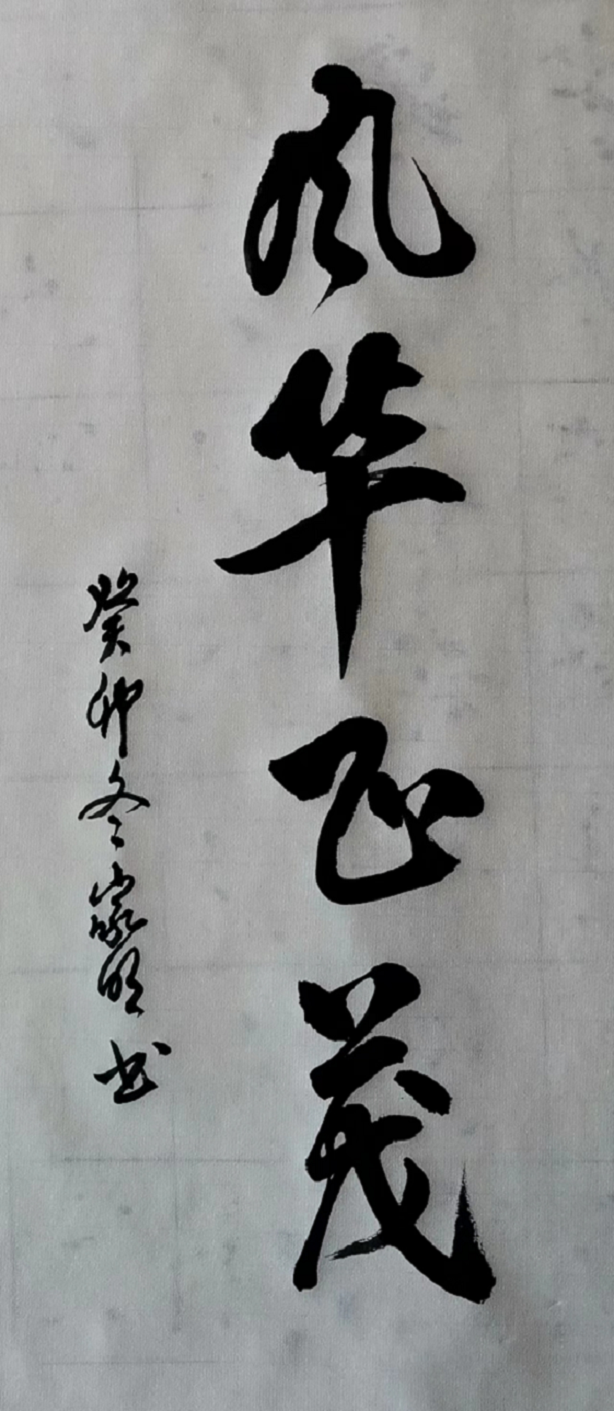 风华正茂
癸卯冬家明书